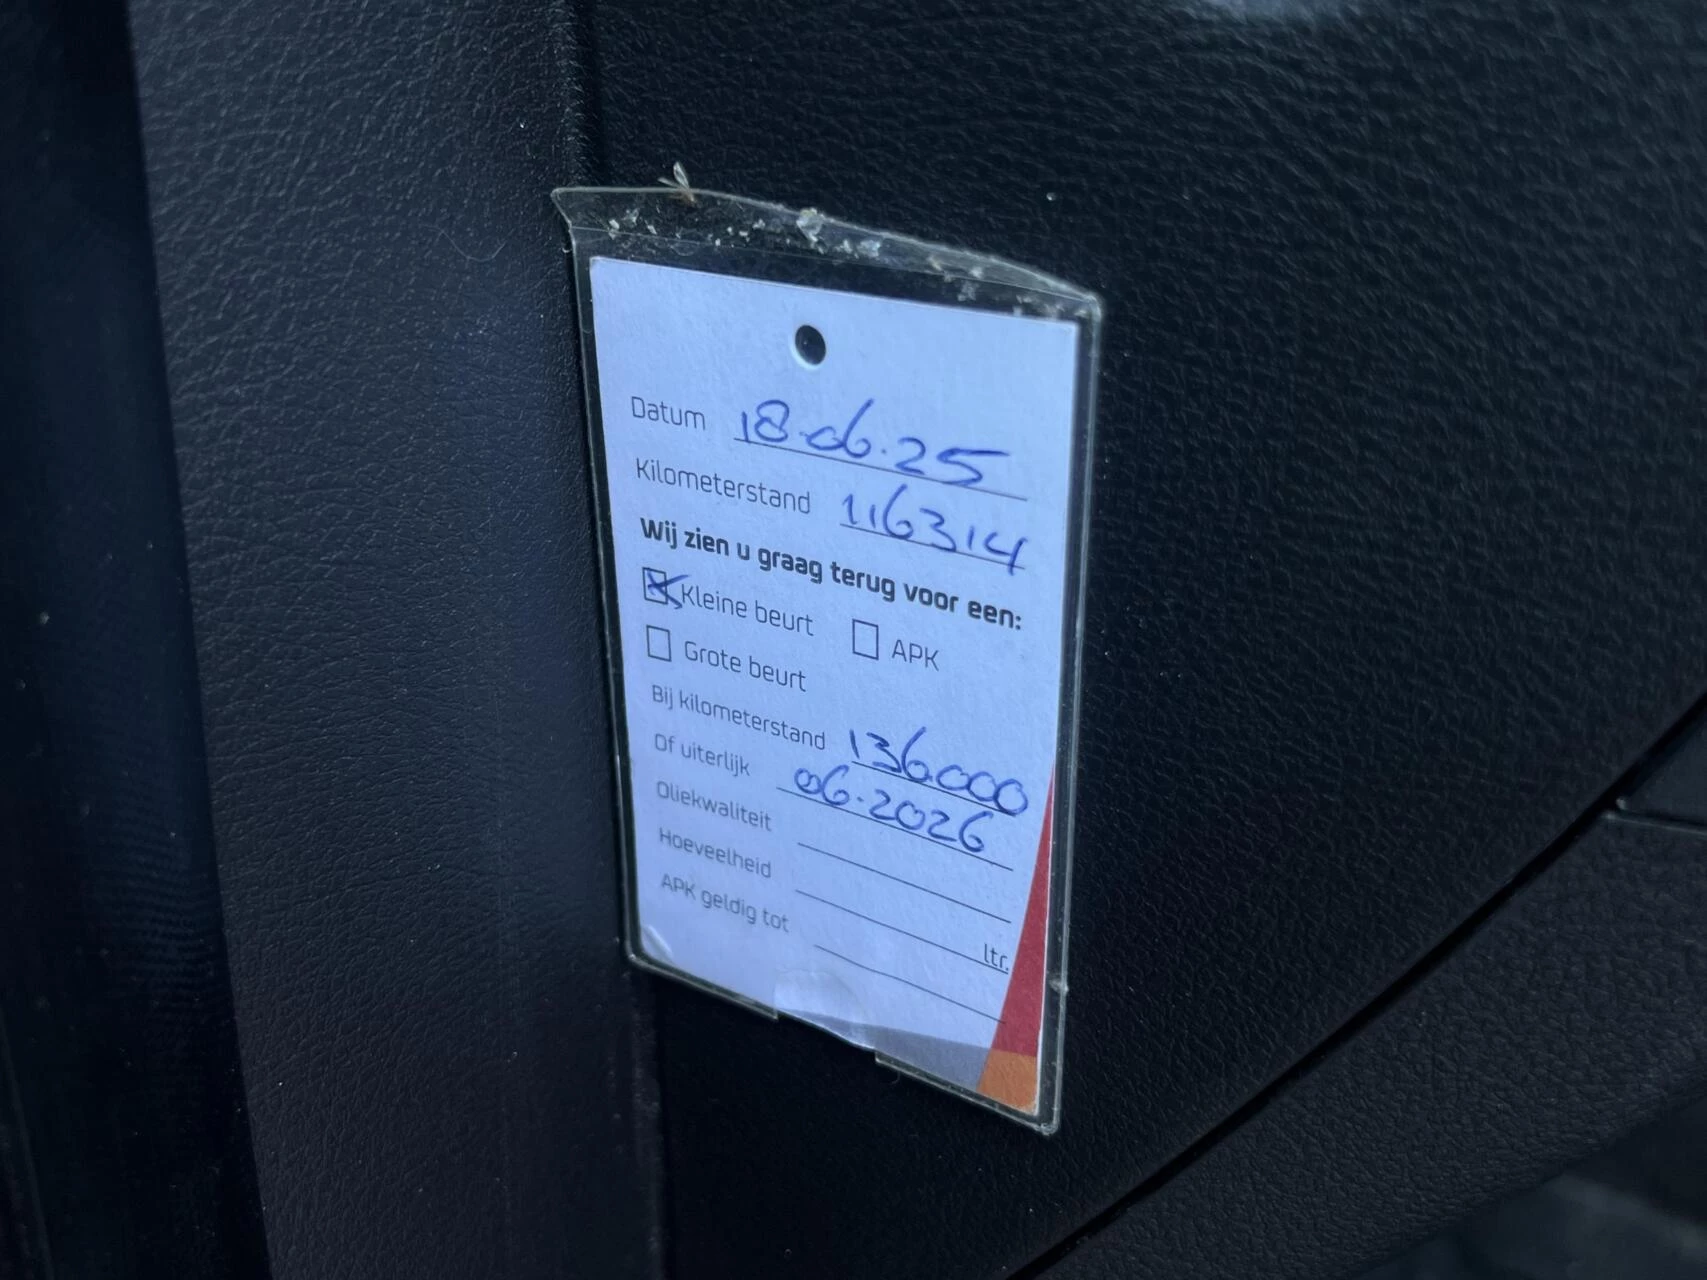 Datum 18-06-25
Kilometerstand 116314
Wij zien u graag terug voor een:
Kleine beurt APK
Grote beurt
Bij kilometerstand 136.000
Of uiterlijk 06-2026
Oliekwaliteit
Hoeveelheid ltr.
APK geldig tot